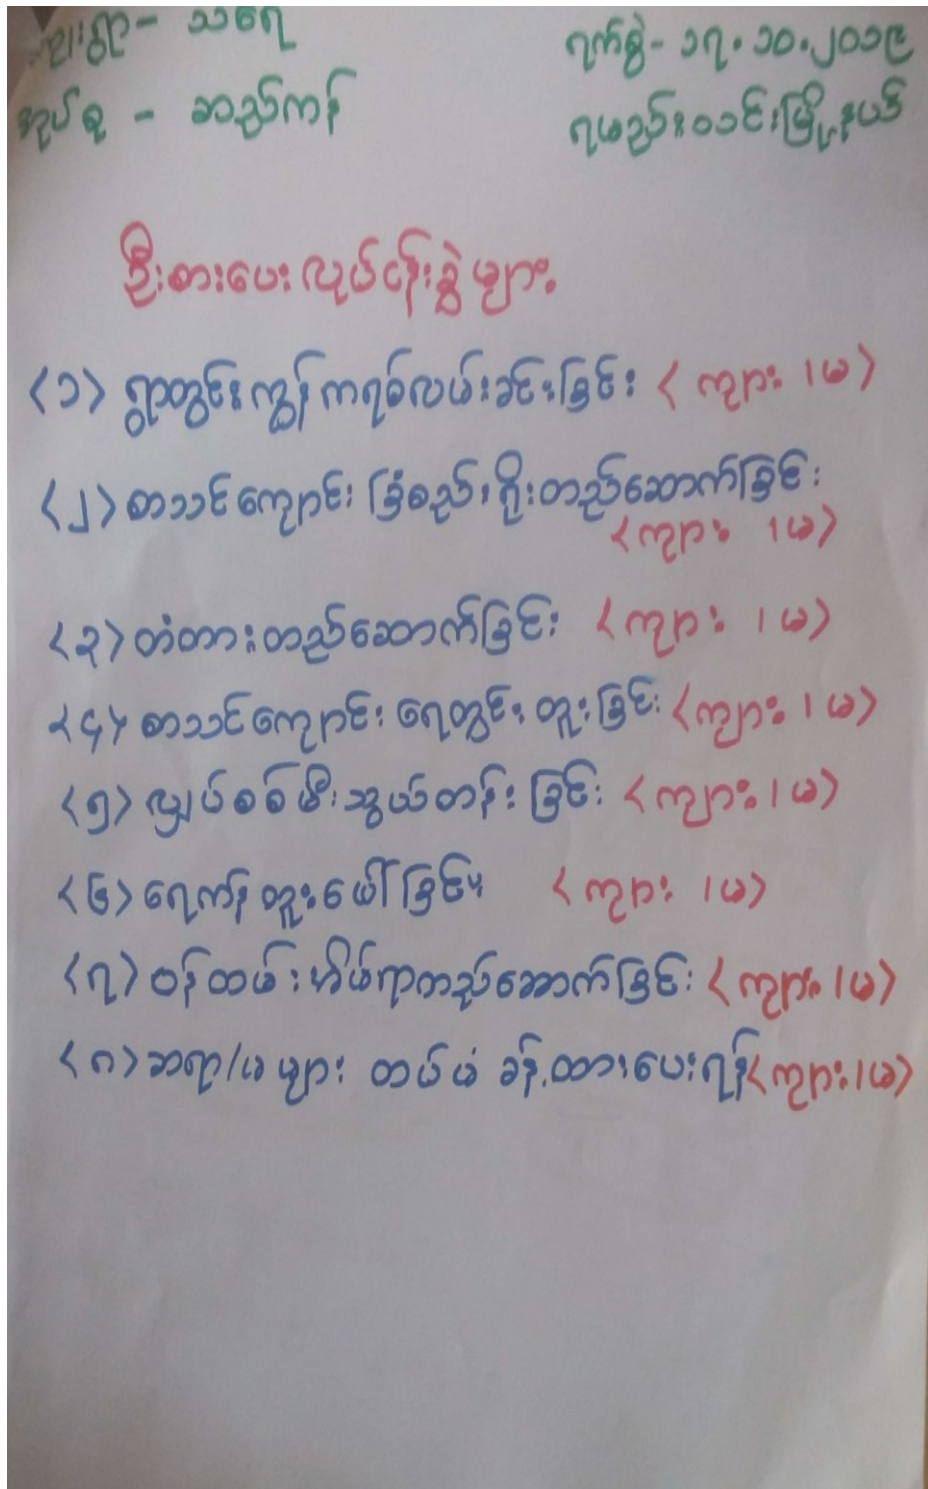 ကျေးရွာ - သရေ
ရက်စွဲ - ၁၇.၁၀.၂၀၁၉
အုပ်စု - ဆည်ကန်
ရမည်းသင်းမြို့နယ်
ဦးစားပေးလုပ်ငန်းခွဲများ
<၁> ရွာတွင်းကွန်ကရစ်လမ်းခင်းခြင်း <ကျား/မ>
<၂> စာသင်ကျောင်း ခြံစည်းရိုးတည်ဆောက်ခြင်း
<ကျား /မ>
<၃> တံတားတည်ဆောက်ခြင်း <ကျား /မ>
<၄> စာသင်ကျောင်း ရေတွင်းတူးခြင်း <ကျား /မ>
<၅> လျှပ်စစ်မီးသွယ်တန်းခြင်း <ကျား/မ>
<၆> ရေကန်တူးဖော်ခြင်း <ကျား /မ>
<၇> ဝန်ထမ်းအိမ်ရာတည်ဆောက်ခြင်း <ကျား/မ>
<၈> ဆရာ/မများ တပ်မံ ခန့်ထားပေးရန် <ကျား/မ>